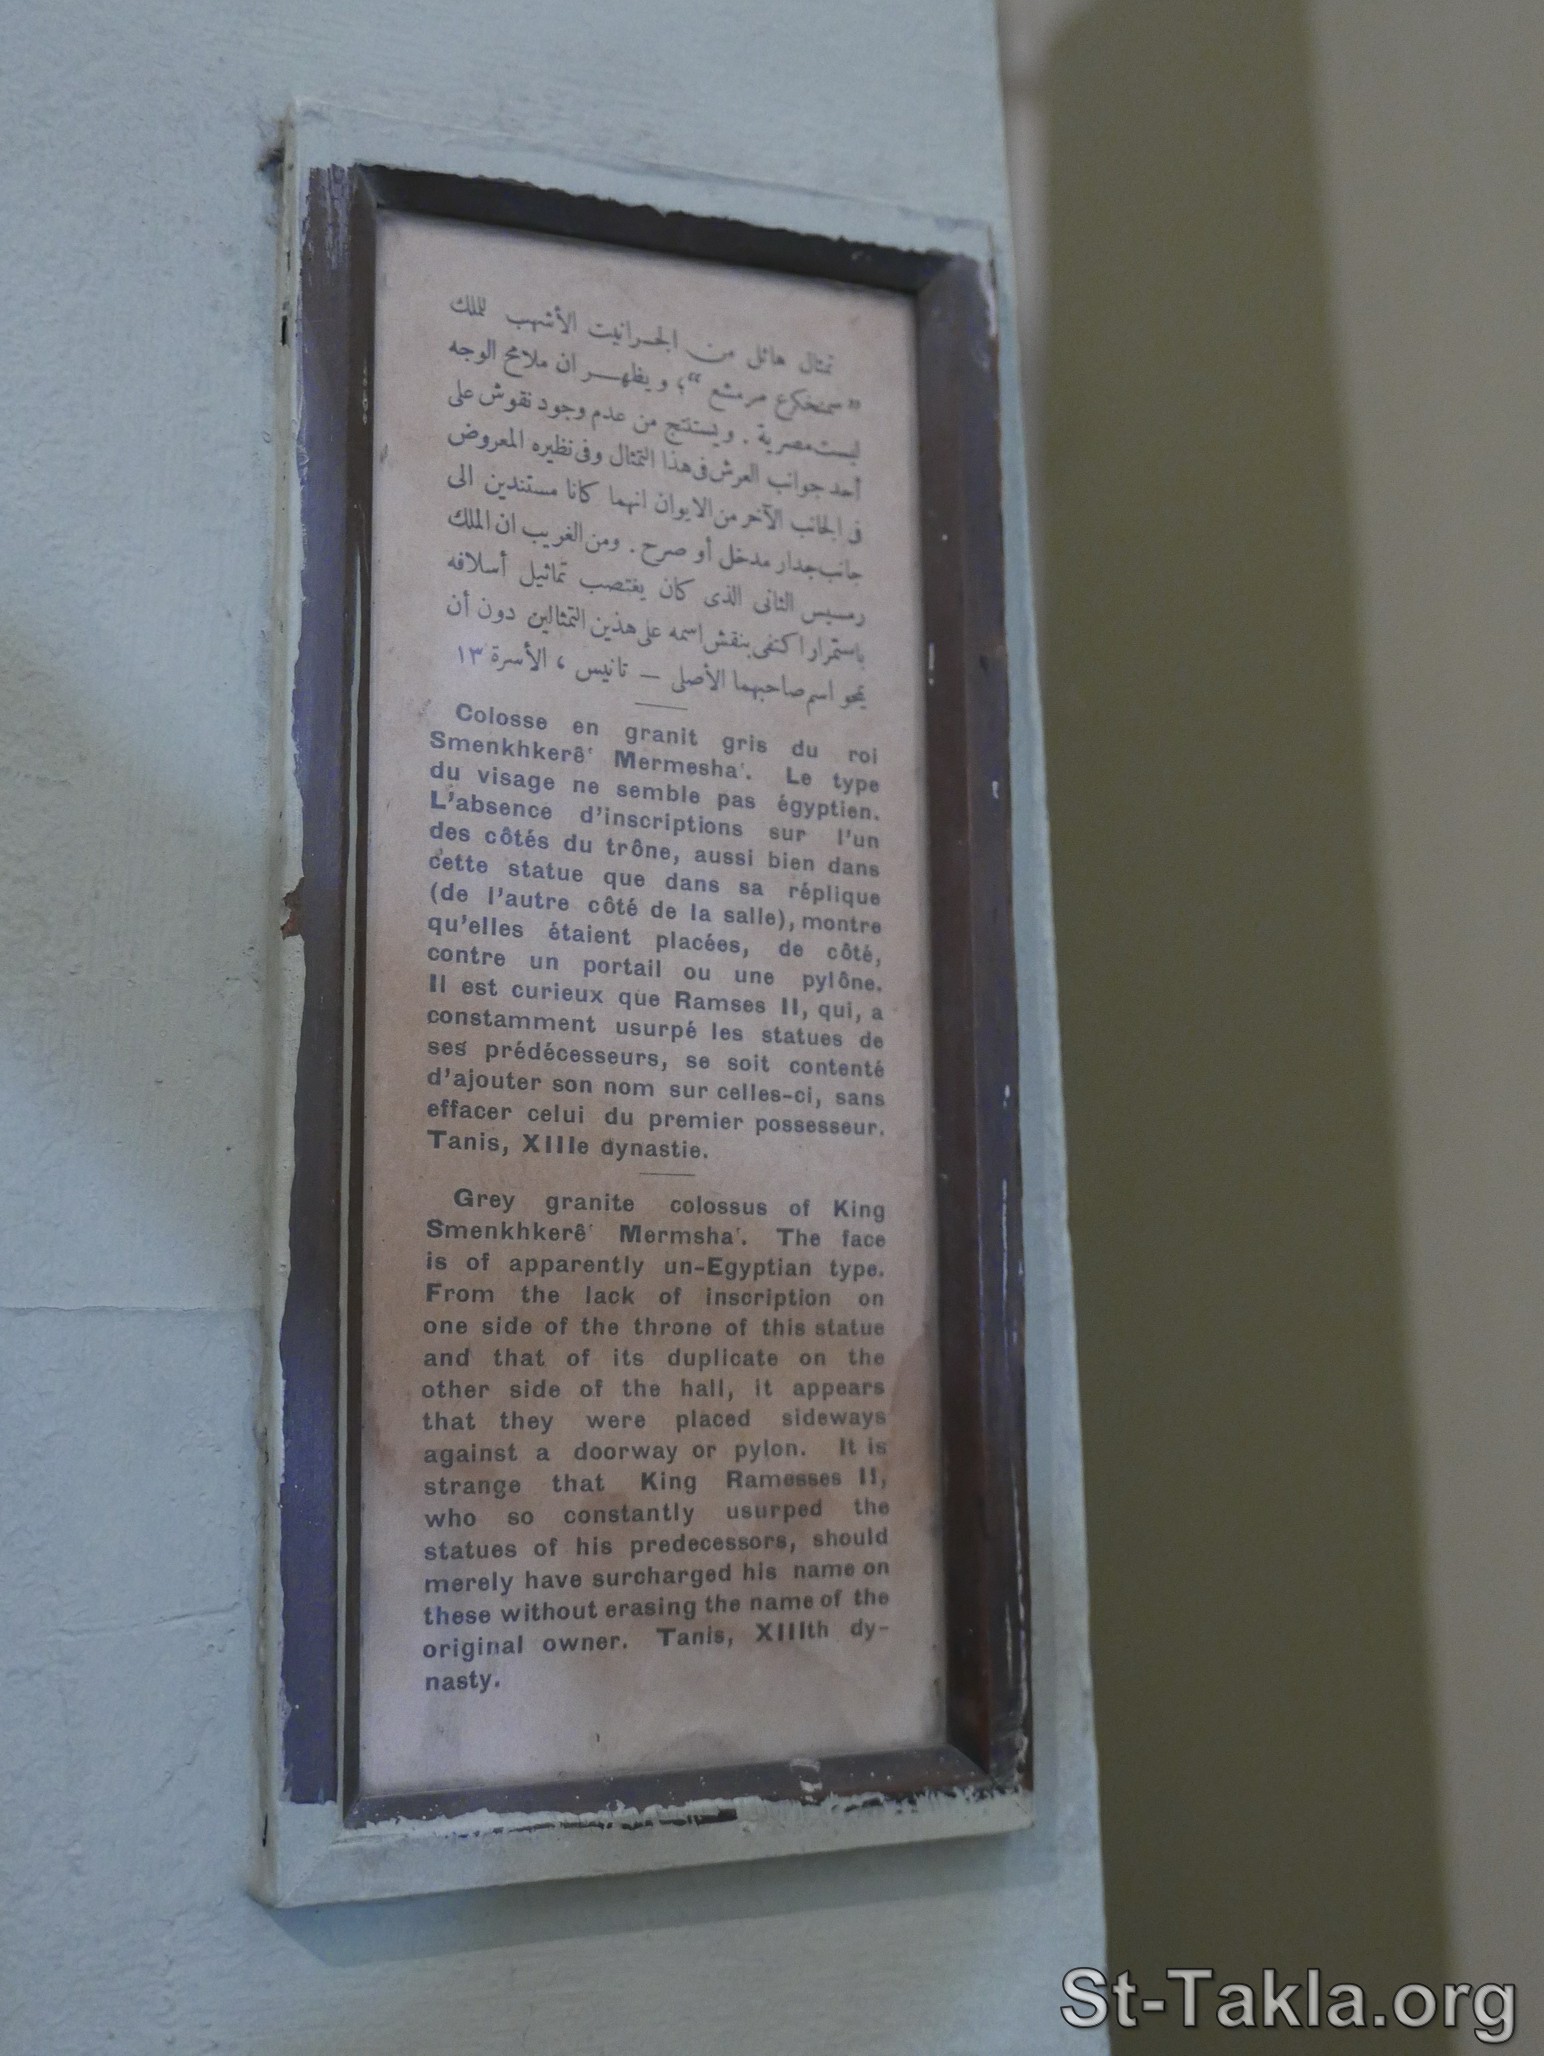 تمثال هائل من الجرانيت الأشهب للملك
”سمنخكرع مرمشع“؛ ويظهر ان ملامح الوجه
ليست مصرية . ويستنتج من عدم وجود نقوش على
أحد جوانب العرش فى هذا التمثال وفى نظيره المعروض
فى الجانب الآخر من الايوان انهما كانا مستندين الى
جانب جدار مدخل أو صرح . ومن الغريب ان الملك
رمسيس الثانى الذى كان يغتصب تماثيل أسلافه
باستمرار اكتفى بنقش اسمه على هذين التمثالين دون أن
يمحو اسم صاحبهما الأصلى — تانيس ، الأسرة ١٣
Colosse en granit gris du roi
Smenkhkerêʿ Mermeshaʿ. Le type
du visage ne semble pas égyptien.
L'absence d'inscriptions sur l'un
des côtés du trône, aussi bien dans
cette statue que dans sa réplique
(de l'autre côté de la salle), montre
qu'elles étaient placées, de côté,
contre un portail ou une pylône.
Il est curieux que Ramses II, qui, a
constamment usurpé les statues de
ses prédécesseurs, se soit contenté
d'ajouter son nom sur celles-ci, sans
effacer celui du premier possesseur.
Tanis, XIIIe dynastie.
Grey granite colossus of King
Smenkhkerêʿ Mermshaʿ. The face
is of apparently un-Egyptian type.
From the lack of inscription on
one side of the throne of this statue
and that of its duplicate on the
other side of the hall, it appears
that they were placed sideways
against a doorway or pylon. It is
strange that King Ramesses II,
who so constantly usurped the
statues of his predecessors, should
merely have surcharged his name on
these without erasing the name of the
original owner. Tanis, XIIIth dy-
nasty.
St-Takla.org